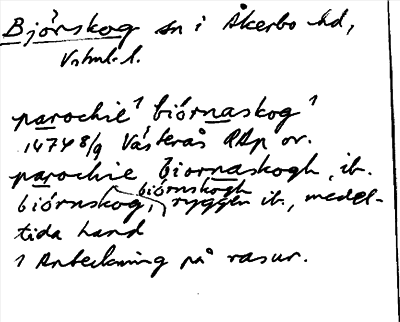 Björskog sn i Åkerbo hd,
Vstml. l.
parochie¹ biórnaskog¹
1474 8/9 Västerås RAp or.
parochie biornaskogh, ib.
biórnskogh
biórnskog, ryggen ib., medel-
tida hand
¹ Anteckning på rasur.